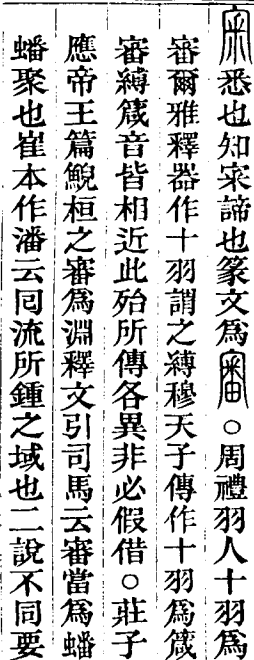 宷悉也知宷諦也篆文爲審○周禮羽人十羽爲
審爾雅釋器作十羽謂之縛穆天子傳作十羽爲箴
審縛箴音皆相近此殆所傳各異非必假借○莊子
應帝王篇鯢桓之審爲淵釋文引司馬云審當爲蟠
蟠聚也崔本作潘云囘流所鍾之域也二說不同要